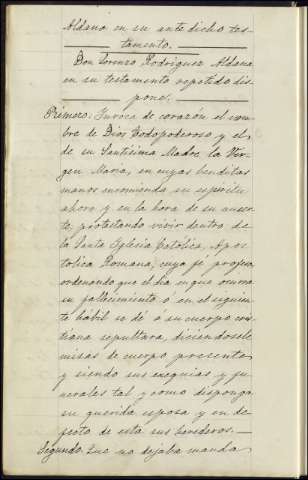 Aldana en su ante dicho tes-
tamento.
Don Lorenzo Rodriguez Aldana
en su testamento repetido dis-
pone.
Primero: Invoca de corazón el nom-
bre de Dios Todopoderoso y el
de su Santísima Madre la Vir-
gen María, en cuyas benditas
manos encomienda su espíritu
ahora y en la hora de su muer-
te, protestando vivir dentro de
la Santa Iglesia Católica, Apos-
tolica Romana, cuya fé profesa
ordenando que el dia en que ocurra
su fallecimiento ó en el siguien-
te habil se dé á su cuerpo cris-
tiana sepultura, diciendosele
misas de cuerpo presente
y siendo sus exequias y fu-
nerales tal y como disponga
su querida esposa y en de-
fecto de esta sus herederos.
Segundo. Que no dejaba manda